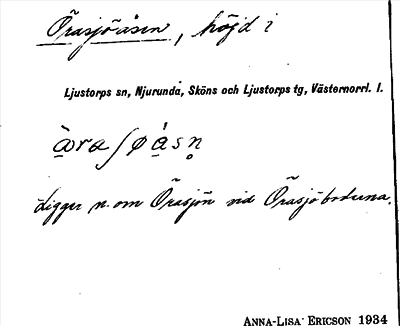 Örasjöåsen, höjd i
Ljustorps sn, Njurunda, Sköns och Ljustorps tg, Västernorrl. l.
Ligger n. om Örasjön vid Örasjöbodarna.
ANNA-LISA ERICSON 1934